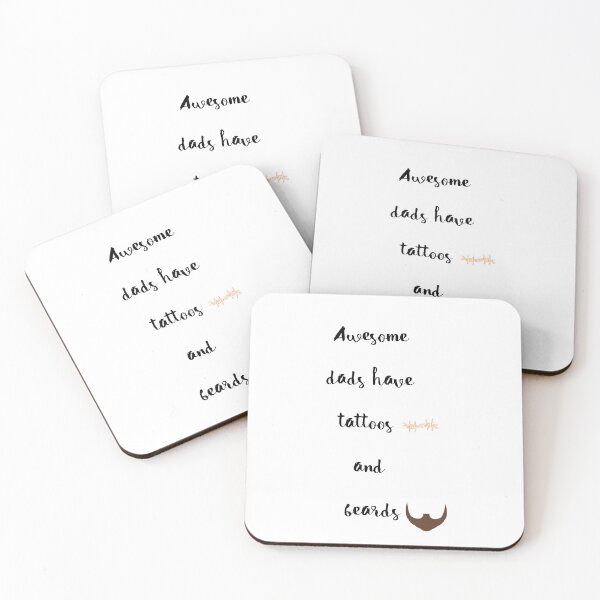 Awesome
dads have
Awesome
dads have
tattoos
and
Awesome
dads have
tattoos
and
beards
Awesome
dads have
tattoos
and
beards